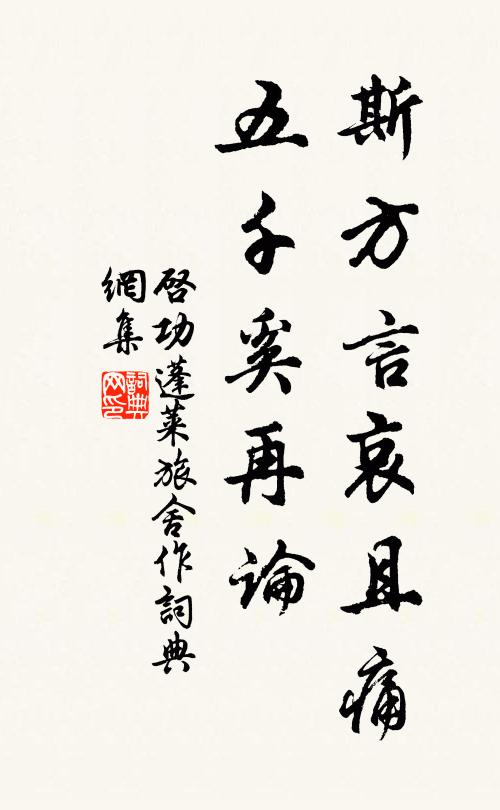 斯方言哀且痛
五千奚再論
啓功蓬萊旅舍作詞典
網集
詞典
网印